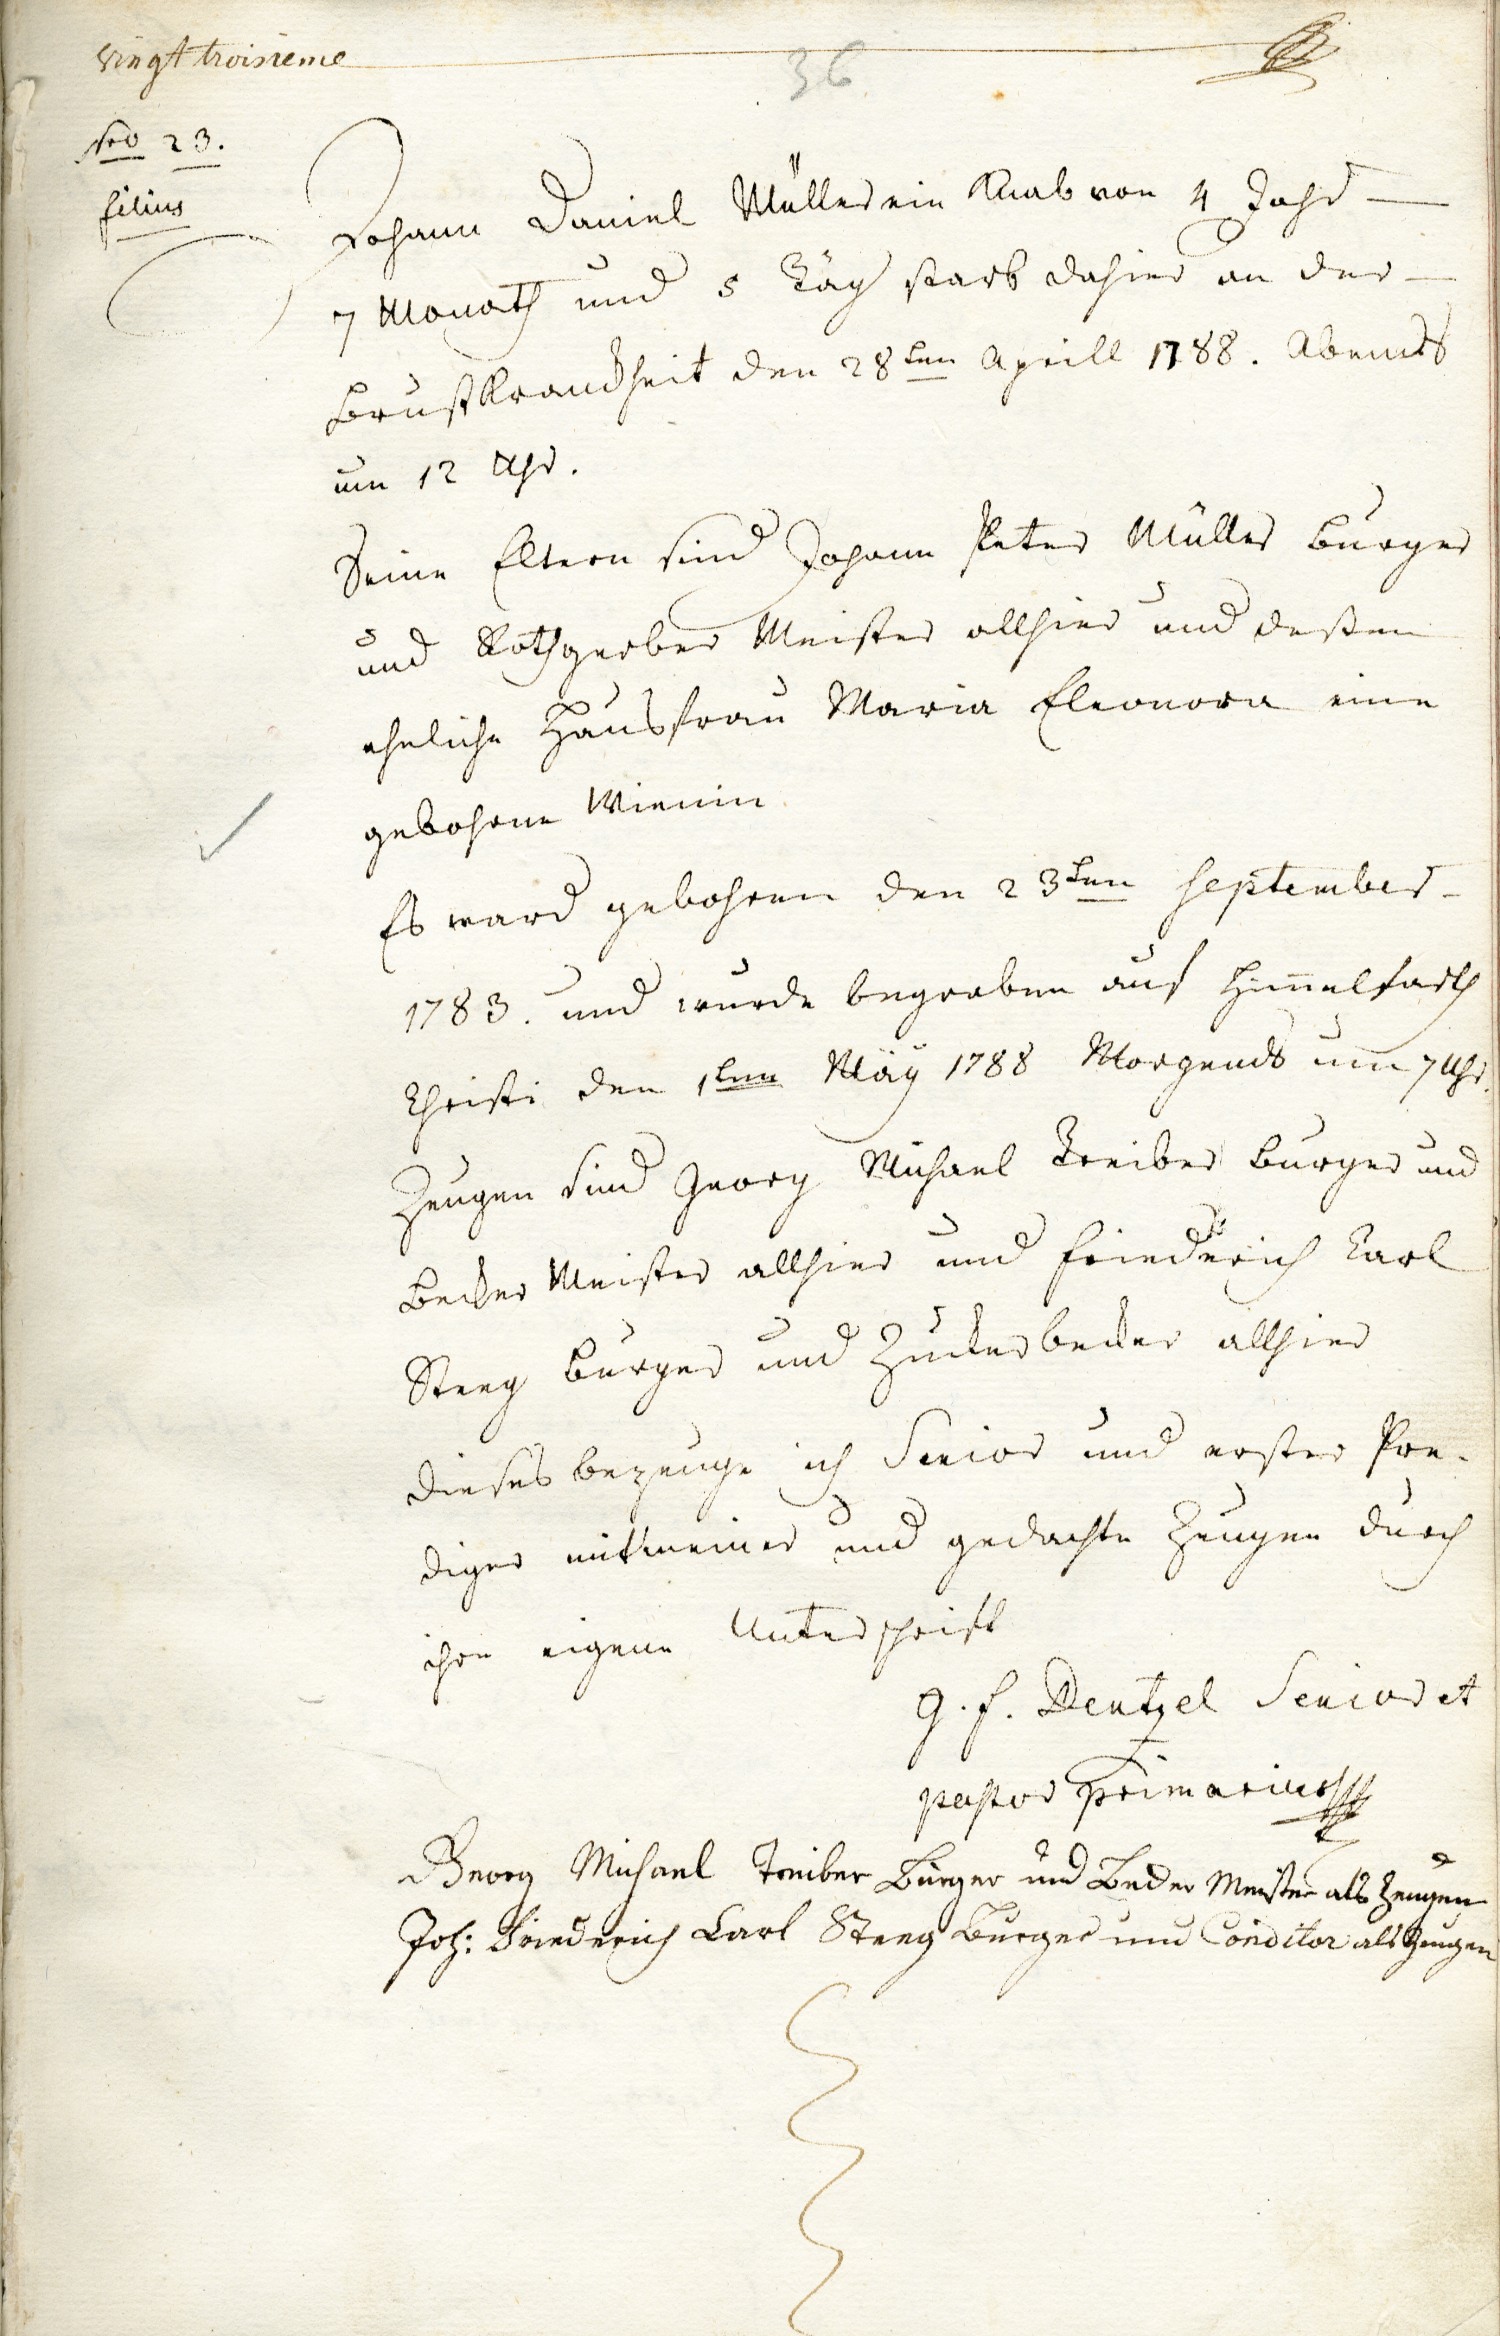 vingt troisieme
36
Nro 23.
filius
Johann Daniel Müller ein Knab von 4 Jahr
7 Monath und 5 Täg starb dahier an der
Brustkrankheit den 28ten Aprill 1788. Abends
um 12 Uhr.
Seine Eltern sind Johann Peter Müller Burger
und Rothgerber Meister allhier und dessen
eheliche Hausfrau Maria Eleonora eine
gebohrne Wienin
Es ward gebohren den 23ten September
1783. und wurde begraben auf Himmelfarth
Christi den 1ten Mäy 1788 Morgends um 7 Uhr.
Zeugen sind Georg Michael Treiber Burger und
Becker Meister allhier und Friederich Carl
Steeg Burger und Zuckerbecker allhier
dieses bezeuge ich Senior und erster Pre-
diger mit meiner und gedachte Zeugen durch
ihre eigene Unterschrift
G. F. Dentzel Senior et
pastor primarius
Georg Michael Treiber Burger und Becker Meister als Zeugen
Joh: Friederich Carl Steeg Burger und Conditor als Zeugen